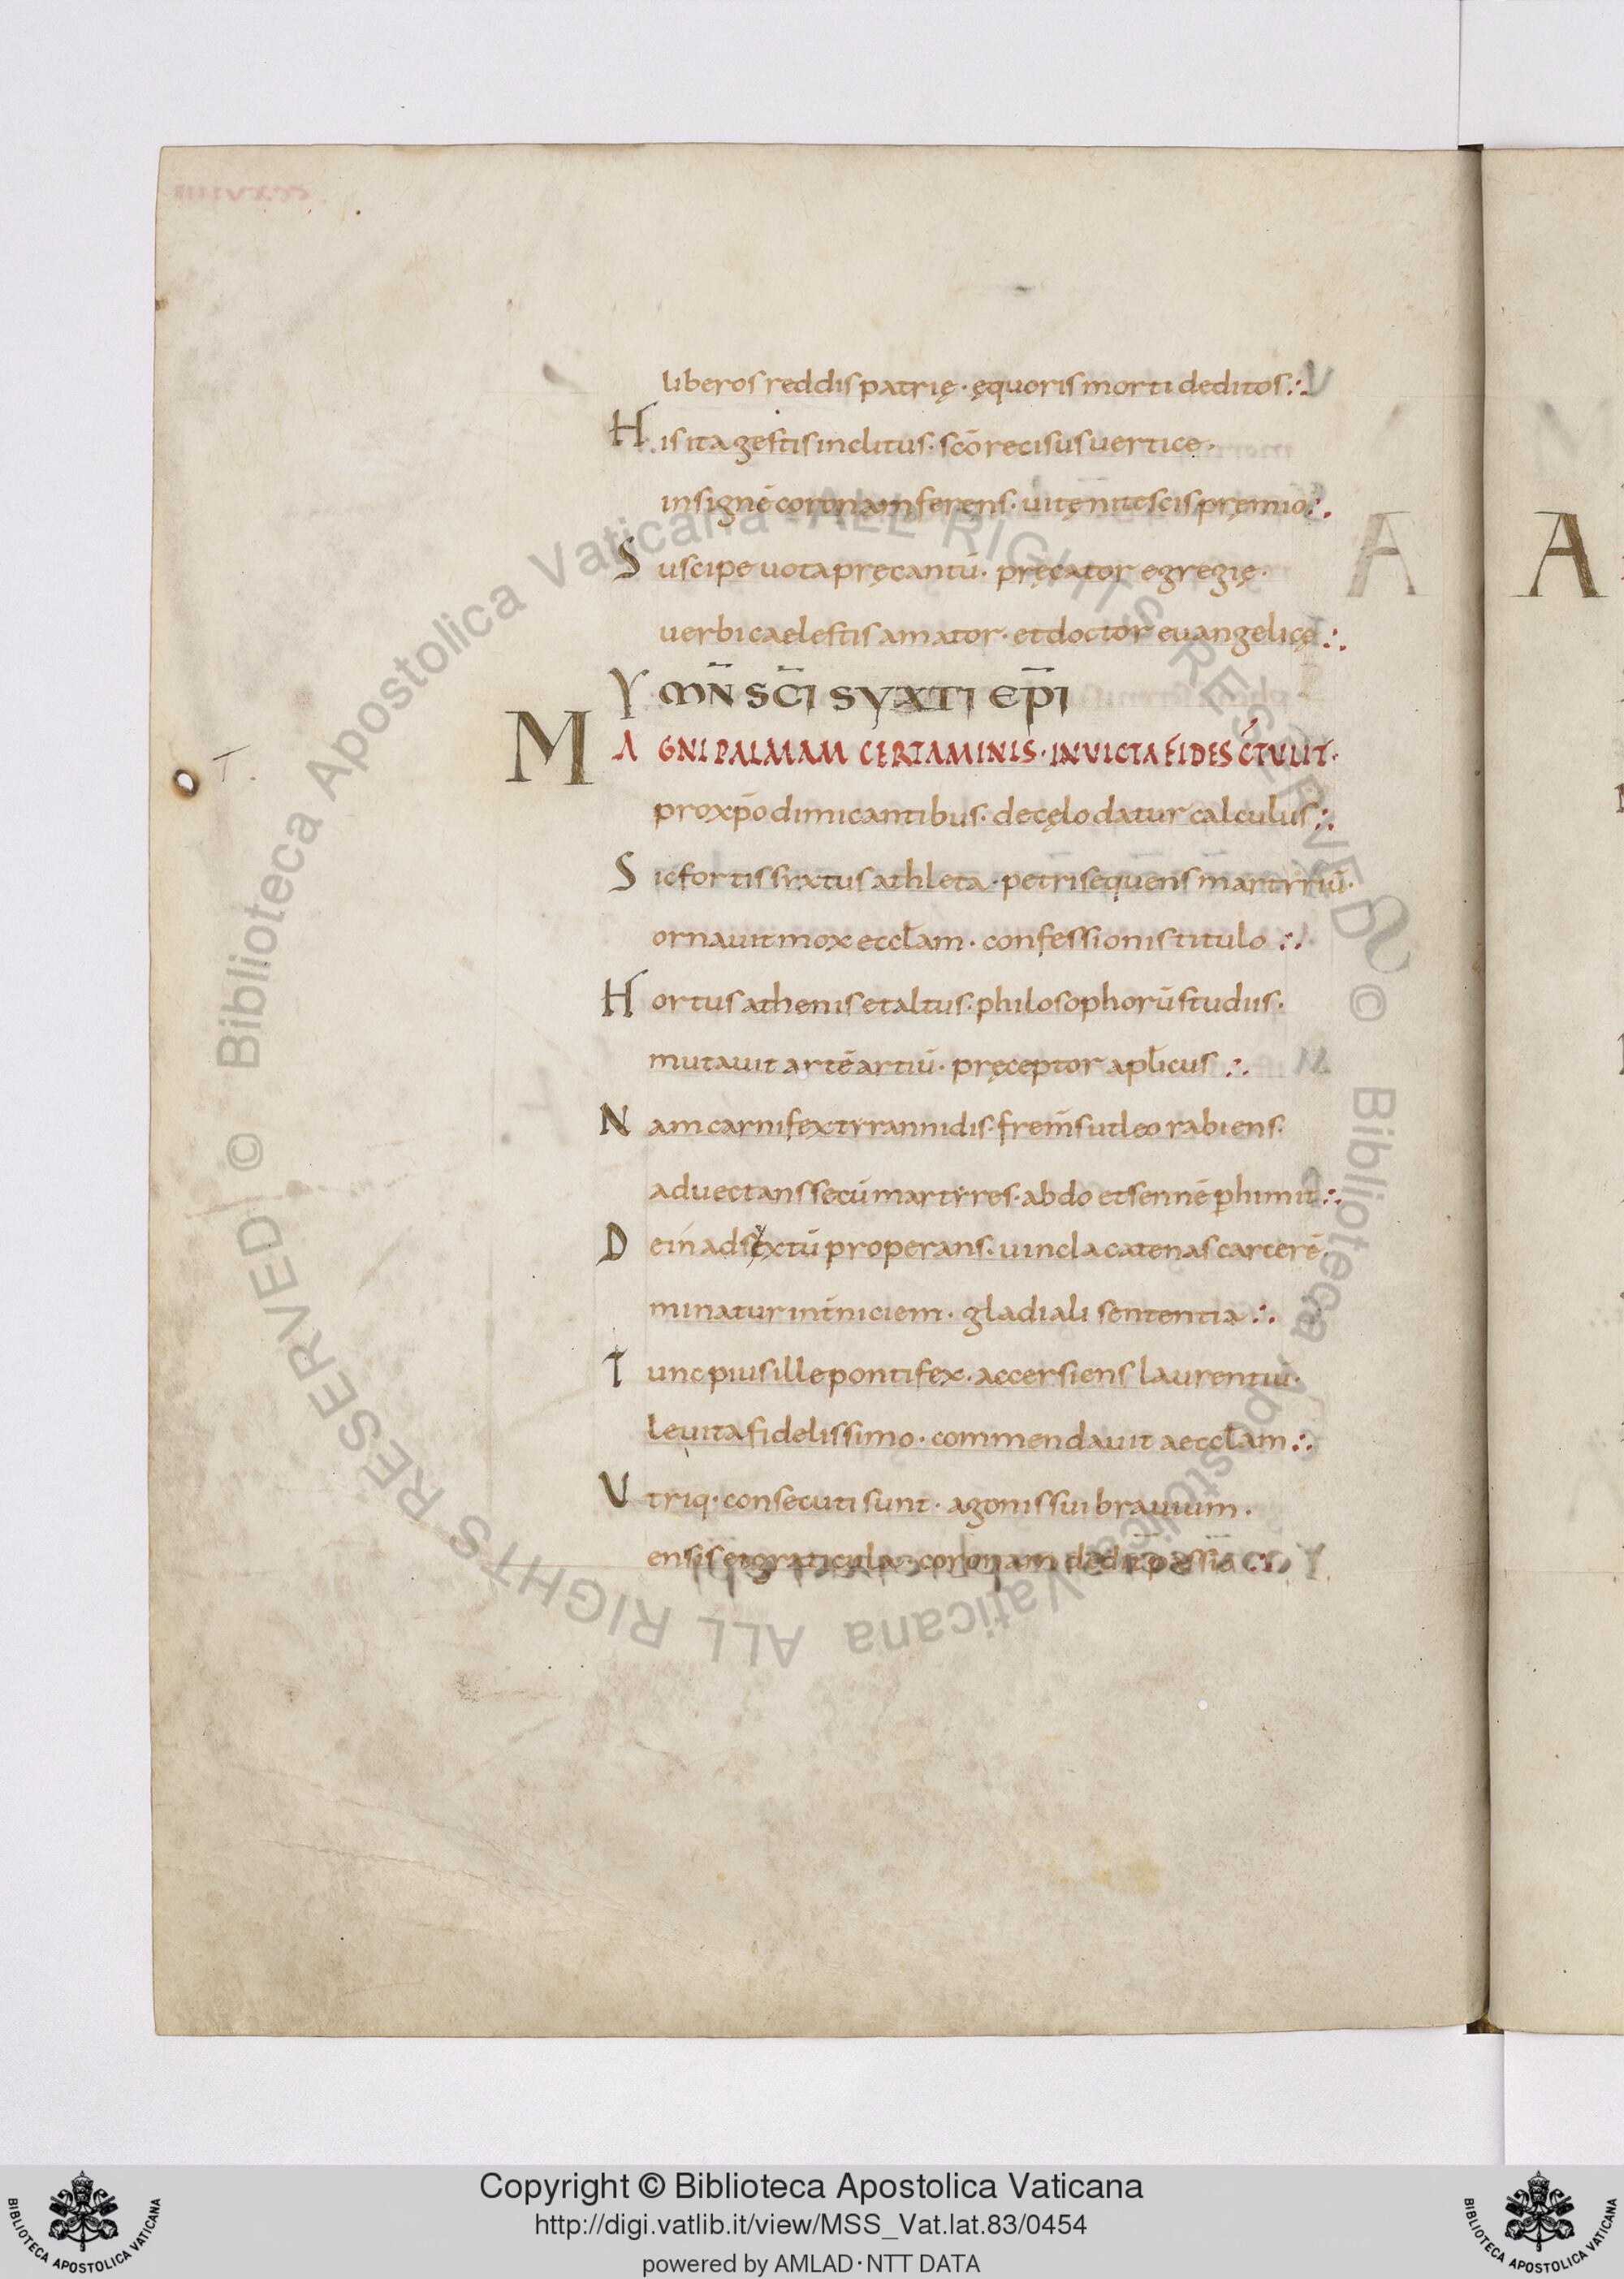 liberos reddis patrię · ęquoris morti deditos :.
His ita gestis inclitus · sc̄o recisus uertice ·
insignē coronam ferens · uitę nitescis pręmio :.
Suscipe uota pręcantū · pręcator egregię ·
uerbi caelestis amator · et doctor euangelicę :.
YMN̄ SC̄I SYXTI EP̄I
MAGNI PALMAM CERTAMINIS · INVICTA FIDES C̄TULIT ·
pro xp̄o dimicantibus · de cęlo datur calculus :.
Sic fortis sixtus athleta · petri sequens martyriū ·
ornauit mox eccl̄am · confessionis titulo :.
Hortus athenis et altus · philosophorū studiis ·
mutauit artē artiū · pręceptor apl̄icus :.
Nam carnifex tyrannidis · frem̄s ut leo rabiens ·
aduectans secū martyres · abdo et sennē phimit :.
Dein ad sextū properans · uincla catenas carcerē ·
minatur int̄niciem · gladiali sententia :.
Tunc pius ille pontifex · accersiens laurentiū ·
leuita fidelissimo · commendauit aeccl̄am :.
Utriq · consecuti sunt · agonis sui brauium ·
ensis et graticula · coronam dedit
T.
A
Biblioteca Apostolica Vaticana ALL RIGHTS RESERVED ©
Biblioteca Apostolica Vaticana ALL RIGHTS RESERVED ©
Copyright © Biblioteca Apostolica Vaticana
http://digi.vatlib.it/view/MSS_Vat.lat.83/0454
powered by AMLAD · NTT DATA
BIBLIOTECA APOSTOLICA VATICANA
BIBLIOTECA APOSTOLICA VATICANA